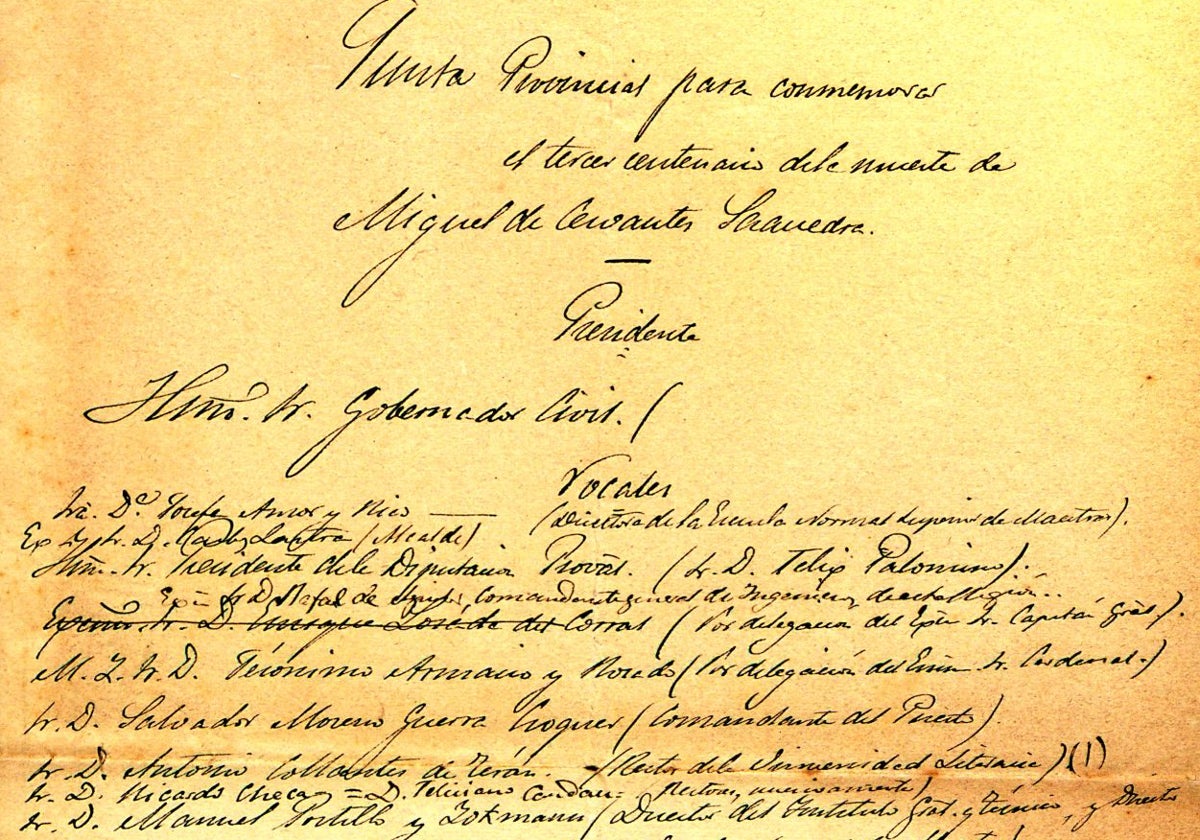 Junta Provincial para conmemorar
el tercer centenario dela muerte de
Miguel de Cervantes Saavedra.
Presidente
Iltmo. Sr. Gobernador Civil. (
Vocales
Sra. Dª. Josefa Amor y Rico — (Directora de la Escuela Normal Superior de Maestras).
Sr. D. (Alcalde)
Iltmo. Sr. Presidente dela Diputación Provâl. (Sr. D. Felix Palomino).
D. Rafael de Comandante general de Ingenieros de esta Región.
Excmo. Sr. D. Enrique Losada del Corral (Por delegación del Excmo Sr. Capitán Gral).
M. I. Sr. D. Jerónimo Armario y Rosado (Por delegación del Emmo. Sr. Cardenal.)
Sr. D. Salvador Moreno Guerra (Comandante del Puerto).
Sr. D. Antonio Collantes de Terán. (Rector dela Universidad Literaria) (1)
Sr. D. Ricardo Checa = D. Feliciano Candau =
Sr. D. Manuel Portillo y (Director del Instituto Gral. y Técnico, y Director